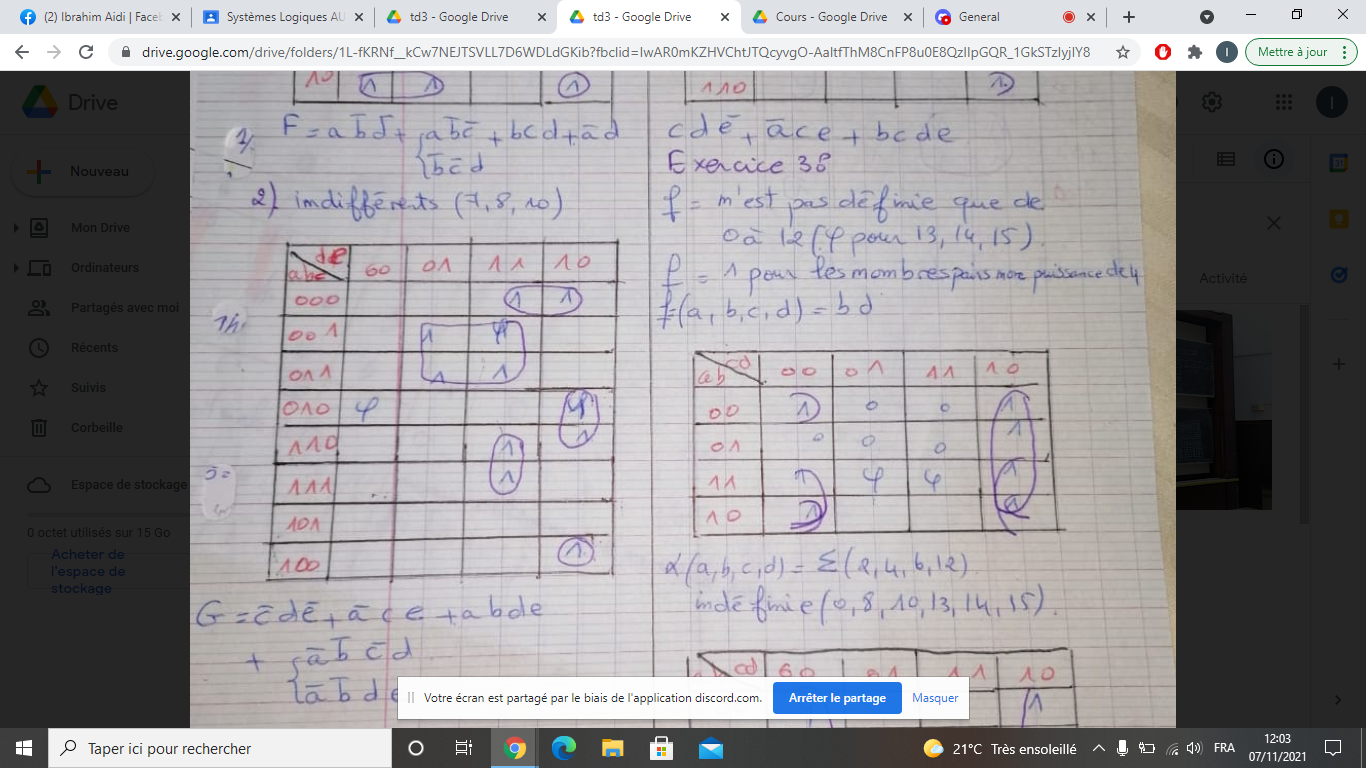 (2) Ibrahim Aidi | Faceb
Systèmes Logiques AU
td3 - Google Drive
td3 - Google Drive
Cours - Google Drive
General
drive.google.com/drive/folders/1L-fKRNf__kCw7NEJTSVLL7D6WDLdGKib?fbclid=IwAR0mKZHVChtJTQcyvgO-AaltfThM8CnFP8u0E8QzIIpGQR_1GkSTzlyjlY8
Mettre à jour
Drive
Nouveau
Mon Drive
Ordinateurs
Partagés avec moi
Récents
Suivis
Corbeille
Espace de stockage
0 octet utilisés sur 15 Go
Acheter de
l'espace de
stockage
Activité
10 1 1 1
F = a b̄ d̄ + { a b̄ c̄ + b c d + ā d
{ b̄ c̄ d
2) indifférents (7, 8, 10)
de
abc 00 01 11 10
000 1 1
001 1 φ
011 1 1
010 φ φ
110 1 1
111 1
101
100 1
G = c̄ d ē + ā c e + a b d e
+ { ā b̄ c̄ d
{ ā b̄ d e
110 1
c d ē + ā c e + b c d e
Exercice 38
f = n'est pas définie que de
0 à 12 (φ pour 13, 14, 15)
f = 1 pour les nombres pairs non puissance de 4
f(a, b, c, d) = b d
cd
ab 00 01 11 10
00 1 0 0 1
01 0 0 0 1
11 1 φ φ 1
10 1 1
α(a, b, c, d) = Σ(2, 4, 6, 12)
indéfinie (0, 8, 10, 13, 14, 15).
cd 00 01 11 10
1
Votre écran est partagé par le biais de l'application discord.com.
Arrêter le partage
Masquer
Taper ici pour rechercher
21°C Très ensoleillé
FRA
12:03
07/11/2021